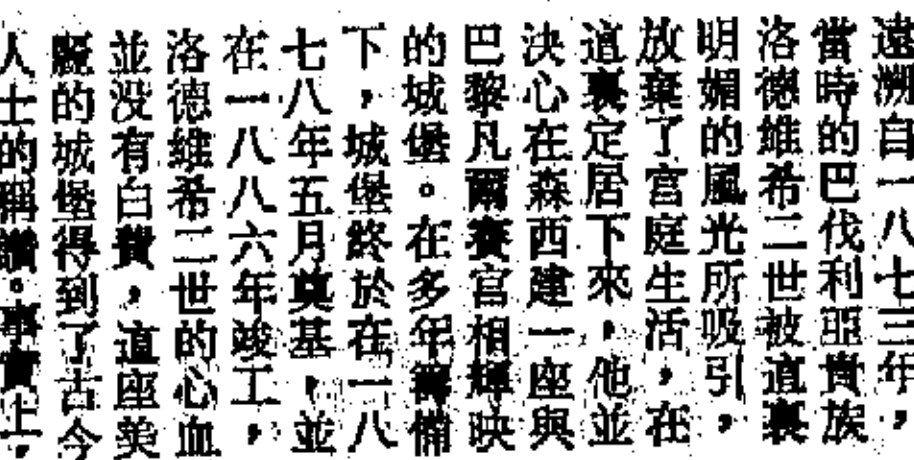 遠溯自一八七三年，
當時的巴伐利亞貴族
洛德維希二世被這裏
明媚的風光所吸引，
放棄了宮庭生活，在
這裏定居下來，他並
決心在森西建一座與
巴黎凡爾賽宮相輝映
的城堡。在多年籌備
下，城堡終於在一八
七八年五月奠基，並
在一八八六年竣工，
洛德維希二世的心血
並没有白費，這座美
麗的城堡得到了古今
人士的稱讚。事實上，